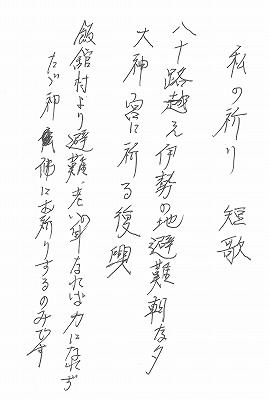 私の祈り　短歌
八十路越え伊勢の地避難朝な夕
大神宮に祈る復興
飯舘村より避難・老い年なれば力になれず
たゞ神佛にお祈りするのみです